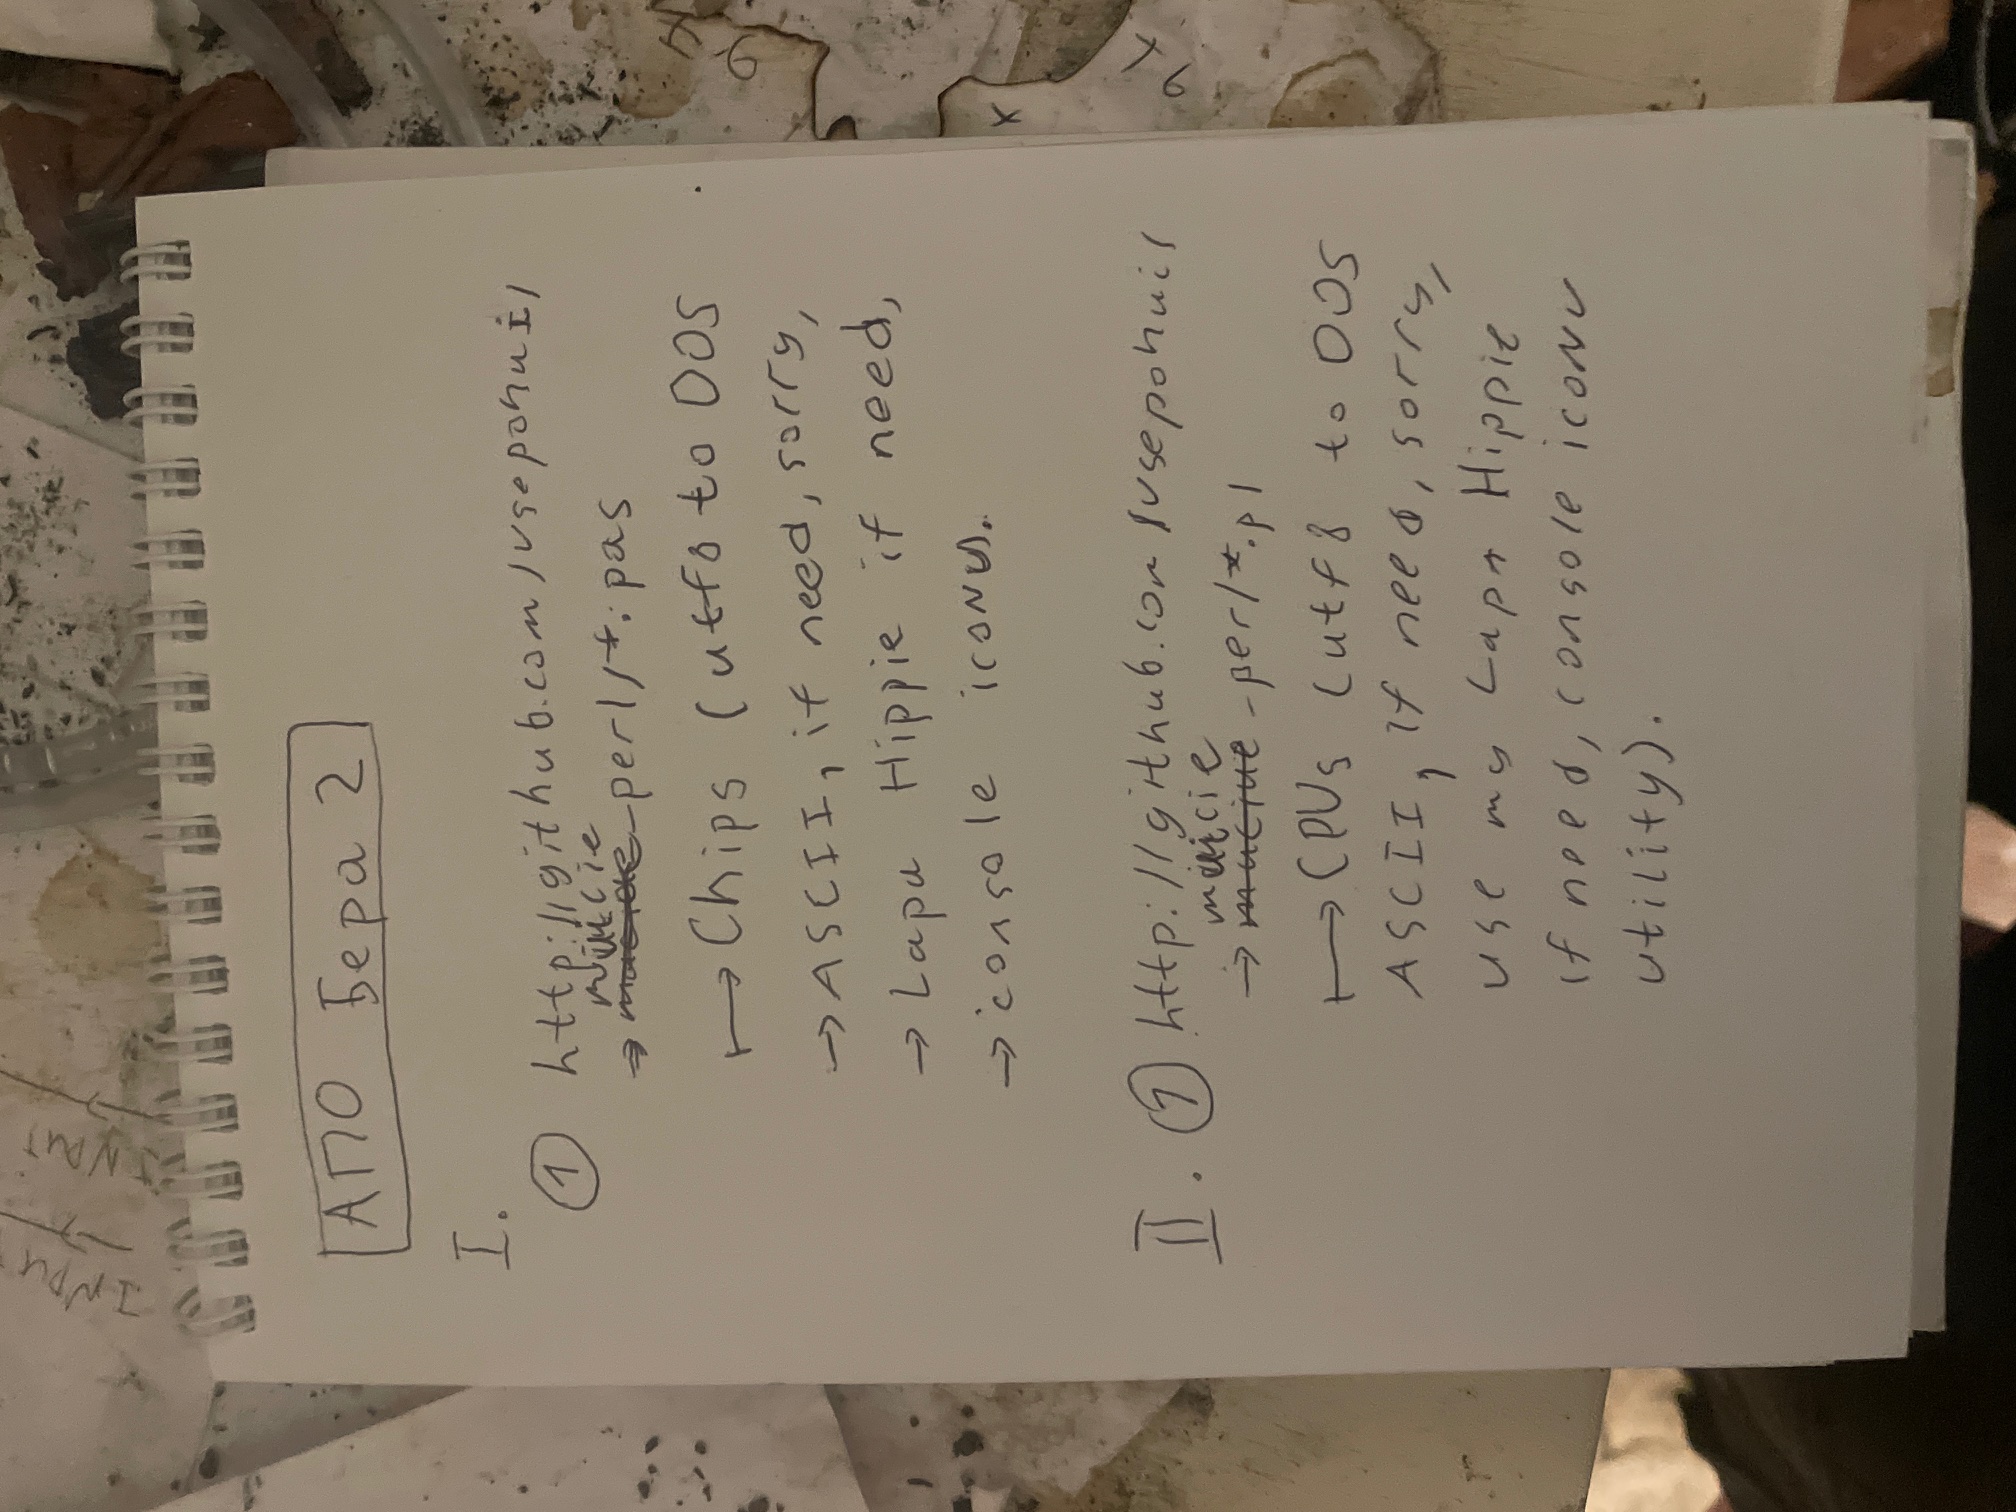 INPUT
INPUT
АПО Бера 2
I.
① http://github.com/vsepohui/
muicie
→ -perl/*.pas
↦ Chips (utf8 to DOS
→ ASCII, if need, sorry,
→ Lapa Hippie if need,
→ console iconv).
II. ① http://github.com/vsepohui/
muicie
→ -perl/*.pl
↦ CPUs (utf8 to DOS
ASCII, if need, sorry,
use my Lapa Hippie
if need, console iconv
utility).